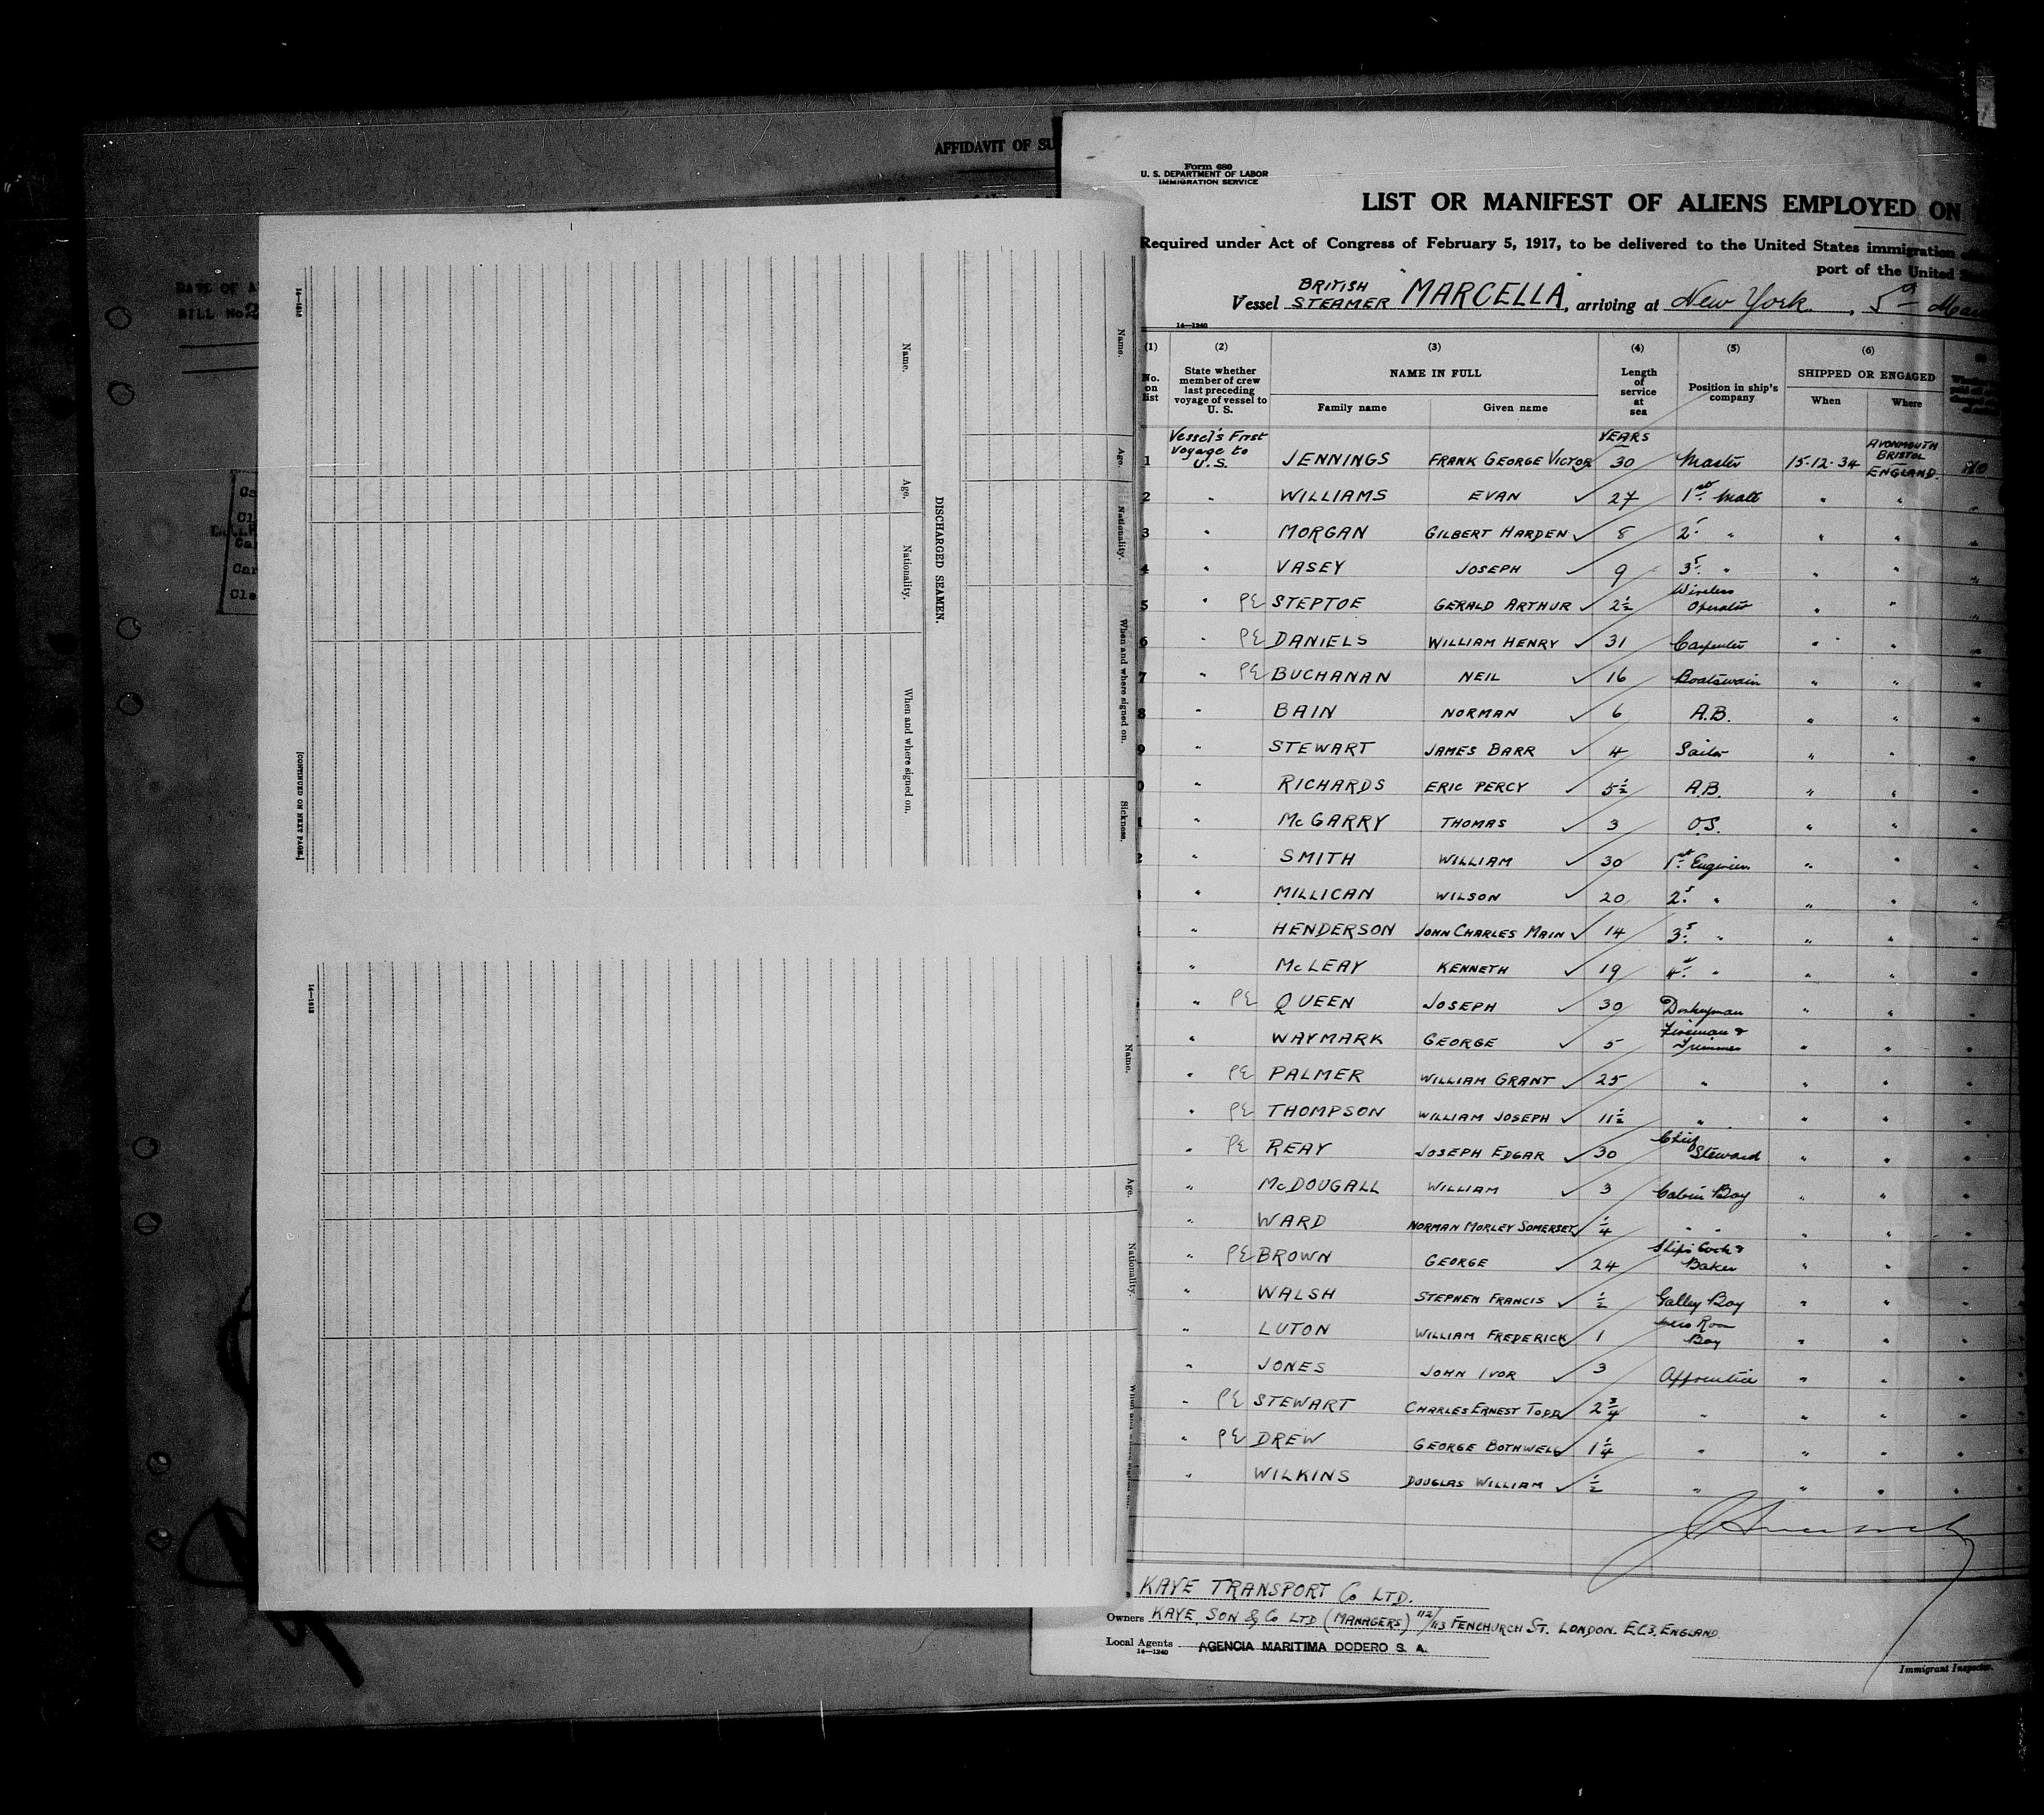 AFFIDAVIT OF SU
DATE OF A
BILL No2
Ca
Cl
Ca
Car
Cle
14—1618
[CONTINUED ON NEXT PAGE.]
Name.
Age.
Nationality.
When and where signed on.
DISCHARGED SEAMEN.
Name.
Age.
Nationality.
When and where signed on.
Sickness.
14—1618
Name.
Age.
Nationality.
Form 680
U. S. DEPARTMENT OF LABOR
IMMIGRATION SERVICE
LIST OR MANIFEST OF ALIENS EMPLOYED ON
Required under Act of Congress of February 5, 1917, to be delivered to the United States immigration
port of the United
Vessel BRITISH STEAMER "MARCELLA", arriving at New York, 5th Mar
14—1240
(1) (2) (3) (4) (5) (6)
No. on list State whether member of crew last preceding voyage of vessel to U. S. NAME IN FULL Length of service at sea Position in ship's company SHIPPED OR ENGAGED
Family name Given name When Where
1 Vessel's First Voyage to U.S. JENNINGS FRANK GEORGE VICTOR YEARS 30 Master 15.12.34 AVONMOUTH BRISTOL ENGLAND. NO
2 " WILLIAMS EVAN ✓ 27 1st Mate " " "
3 " MORGAN GILBERT HARDEN ✓ 8 2d " " " "
4 " VASEY JOSEPH ✓ 9 3d " " " "
5 " PE STEPTOE GERALD ARTHUR ✓ 2½ Wireless Operator " " "
6 " PE DANIELS WILLIAM HENRY ✓ 31 Carpenter " " "
7 " PE BUCHANAN NEIL ✓ 16 Boatswain " " "
8 " BAIN NORMAN ✓ 6 A.B. " " "
9 " STEWART JAMES BARR ✓ 4 Sailor " " "
0 " RICHARDS ERIC PERCY ✓ 5½ A.B. " " "
1 " McGARRY THOMAS ✓ 3 O.S. " " "
2 " SMITH WILLIAM ✓ 30 1st Engineer " " "
" MILLICAN WILSON ✓ 20 2d " " " "
" HENDERSON JOHN CHARLES MAIN ✓ 14 3d " " " "
" McLEAY KENNETH ✓ 19 4th " " " "
" PE QUEEN JOSEPH ✓ 30 Donkeyman " " "
" WAYMARK GEORGE ✓ 5 Fireman & Trimmer " " "
" PE PALMER WILLIAM GRANT ✓ 25 " " " "
" PE THOMPSON WILLIAM JOSEPH ✓ 11½ " " " "
" PE REAY JOSEPH EDGAR ✓ 30 Chief Steward " " "
" McDOUGALL WILLIAM ✓ 3 Cabin Boy " " "
" WARD NORMAN MORLEY SOMERSET ✓ ¼ " " " " "
" PE BROWN GEORGE ✓ 24 Ships Cook & Baker " " "
" WALSH STEPHEN FRANCIS ✓ ½ Galley Boy " " "
" LUTON WILLIAM FREDERICK ✓ 1 Mess Room Boy " " "
" JONES JOHN IVOR ✓ 3 Apprentice " " "
" PE STEWART CHARLES ERNEST TODD ✓ 2¾ " " " "
" PE DREW GEORGE BOTHWELL ✓ 1¼ " " " "
" WILKINS DOUGLAS WILLIAM ✓ ½ " " " "
KAYE TRANSPORT Co LTD.
Owners KAYE, SON & Co LTD (MANAGERS) 112/113 FENCHURCH ST. LONDON. E.C.3. ENGLAND
Local Agents AGENCIA MARITIMA DODERO S. A.
14—1240
Immigrant Inspector.